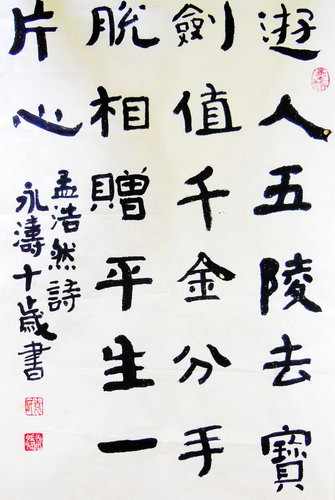 遊人五陵去寳
劍值千金分手
脱相贈平生一
片心
孟浩然詩
永濤十歲書